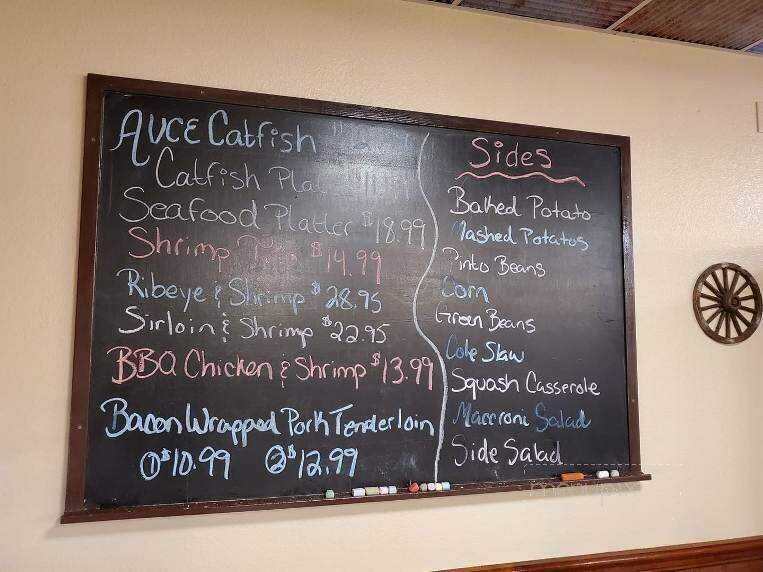 AUCE Catfish
Catfish
Seafood Platter $18.99
Shrimp $14.99
Ribeye & Shrimp $28.95
Sirloin & Shrimp $22.95
BBQ Chicken & Shrimp $13.99
Bacon Wrapped Pork Tenderloin
① $10.99 ② $12.99
Sides
Baked Potato
Mashed Potatos
Pinto Beans
Corn
Green Beans
Cole Slaw
Squash Casserole
Macaroni Salad
Side Salad